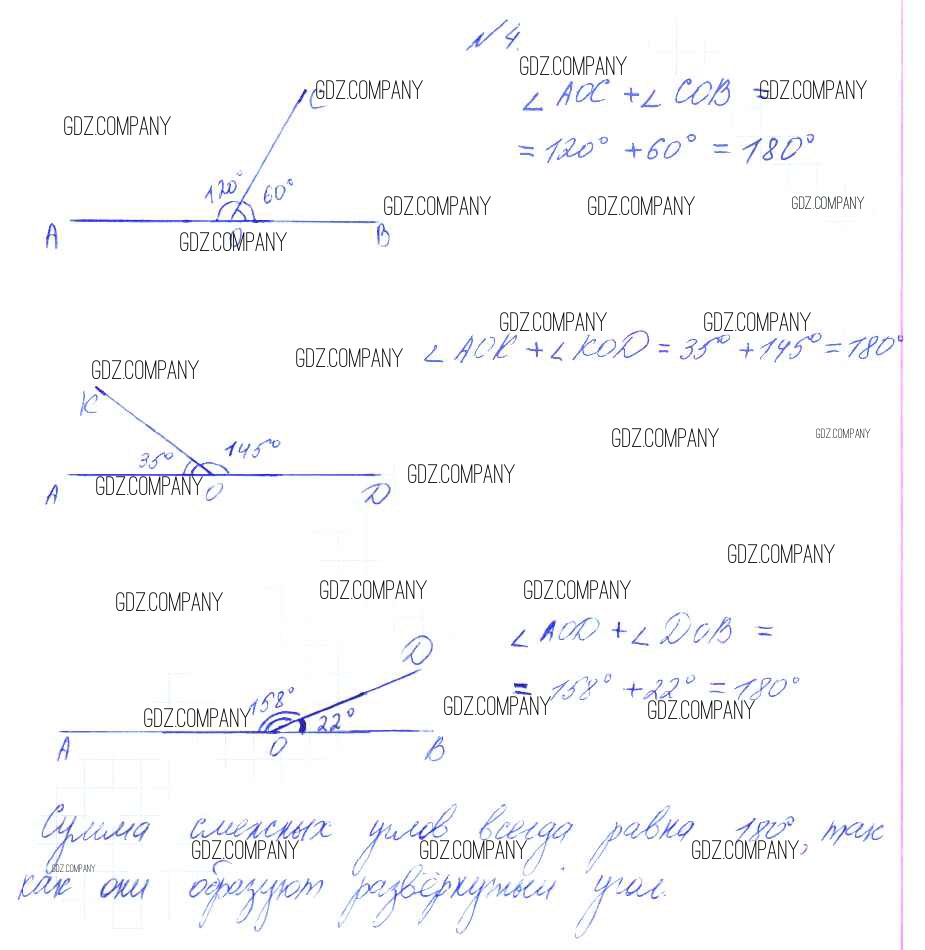 N 4.
GDZ.COMPANY
C GDZ.COMPANY
∠ AOC + ∠ COB =
GDZ.COMPANY
GDZ.COMPANY
= 120° + 60° = 180°
120° 60°
GDZ.COMPANY GDZ.COMPANY GDZ.COMPANY
A O B
GDZ.COMPANY
GDZ.COMPANY GDZ.COMPANY
∠ AOK + ∠ KOD = 35° + 145° = 180°
GDZ.COMPANY GDZ.COMPANY
K
GDZ.COMPANY GDZ.COMPANY
35° 145°
GDZ.COMPANY GDZ.COMPANY
A O D
GDZ.COMPANY
GDZ.COMPANY GDZ.COMPANY GDZ.COMPANY
∠ AOD + ∠ DOB =
D
= 158° + 22° = 180°
158° 22°
GDZ.COMPANY GDZ.COMPANY GDZ.COMPANY
A O B
Сумма смежных углов всегда равна 180°, так
GDZ.COMPANY GDZ.COMPANY GDZ.COMPANY
GDZ.COMPANY
как они образуют развёрнутый угол.